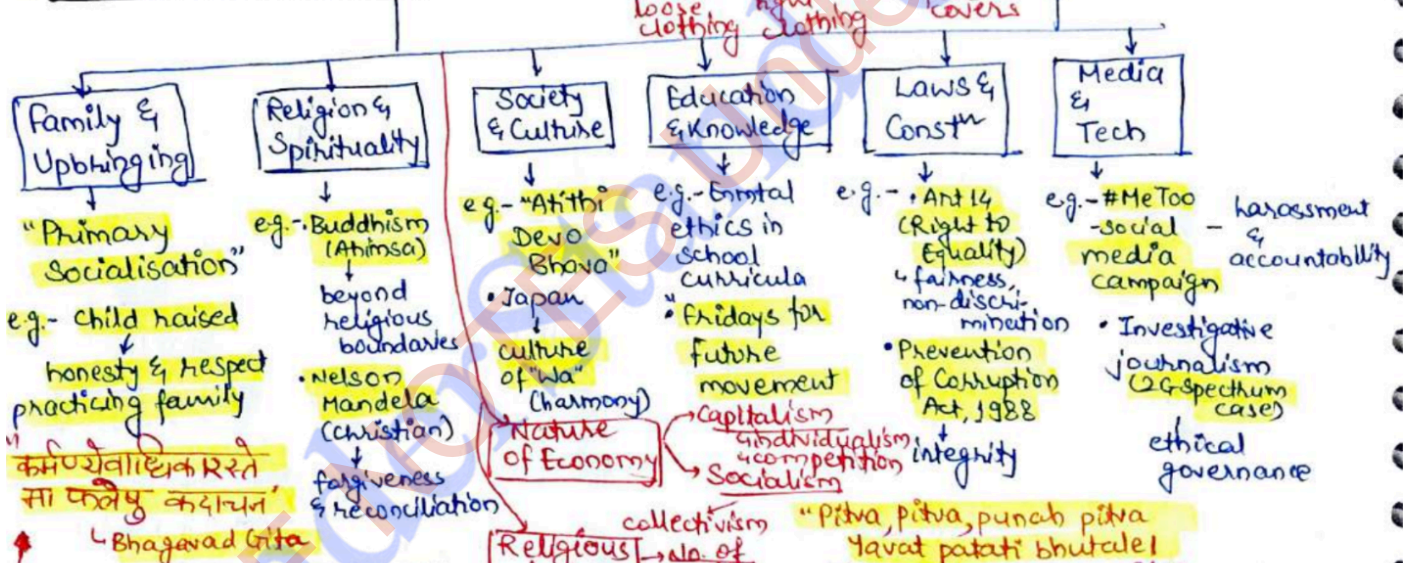 loose
clothing clothing covers
Family &
Upbringing
"Primary
Socialisation"
e.g.- Child raised
↓
honesty & respect
practicing family
"कर्मण्येवाधिकारस्ते
मा फलेषु कदाचन"
↳ Bhagavad Gita
Religion &
Spirituality
e.g.-•Buddhism
(Ahimsa)
↓
beyond
religious
boundaries
•Nelson
Mandela
(Christian)
↓
forgiveness
& reconciliation
Society
& Culture
eg.- "Atithi
Devo
Bhava"
• Japan
↓
culture
of "Wa"
(harmony)
Nature
of Economy
→Capitalism
↳individualism
↳competition
→Socialism
collectivism
Religious → No. of
Education
& Knowledge
e.g.- Enmtal
ethics in
school
curricula
• "Fridays for
future
movement
Laws &
Constn
e.g.- • Art 14
(Right to
Equality)
↳ fairness,
non-discri-
mination
•Prevention
of Corruption
Act, 1988
↓
integrity
Media
&
Tech
e.g.- #MeToo
-social
media
campaign
- harassment
&
accountability
• Investigative
journalism
(2G-spectrum
case)
ethical
governance
"Pitva, pitva, punah pitva
Yavat patati bhutale|